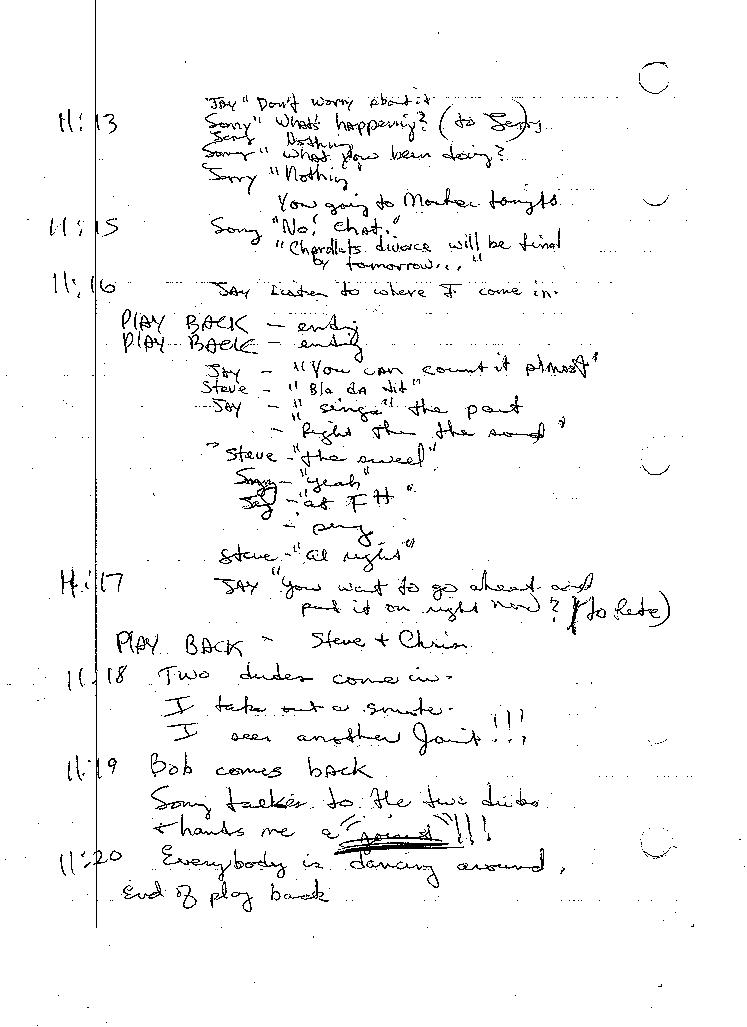 JAY "Don't worry about it
11:13 Sonny "What's happening? (to Jerry)
Jerry Nothing
Sonny "What you been doing?
Jerry "Nothing"
You going to Market tonight
11:15 Sonny "No! Chat."
"Chardlets divorce will be final
by tomorrow..."
11:16 JAY Listen to where I come in.
PLAY BACK - ending
PLAY BACK - ending
JAY - "You can count it almost"
Steve - "Bla da dit"
JAY - "sings" the part
- "Right then the sound"
Steve - "the sweel"
Sonny - "yeah"
Jay - "at F #"
Steve - "al right"
11:17 JAY "You want to go ahead and
put it on right now? (to Pete)
PLAY BACK - Steve + Chris
11:18 Two dudes come in.
I take out a smoke.
I seen another Joint!!!
11:19 Bob comes back
Sonny talkes to the two dudes
+ hands me a "joint"!!!
11:20 Everybody is dancing around,
End of play back